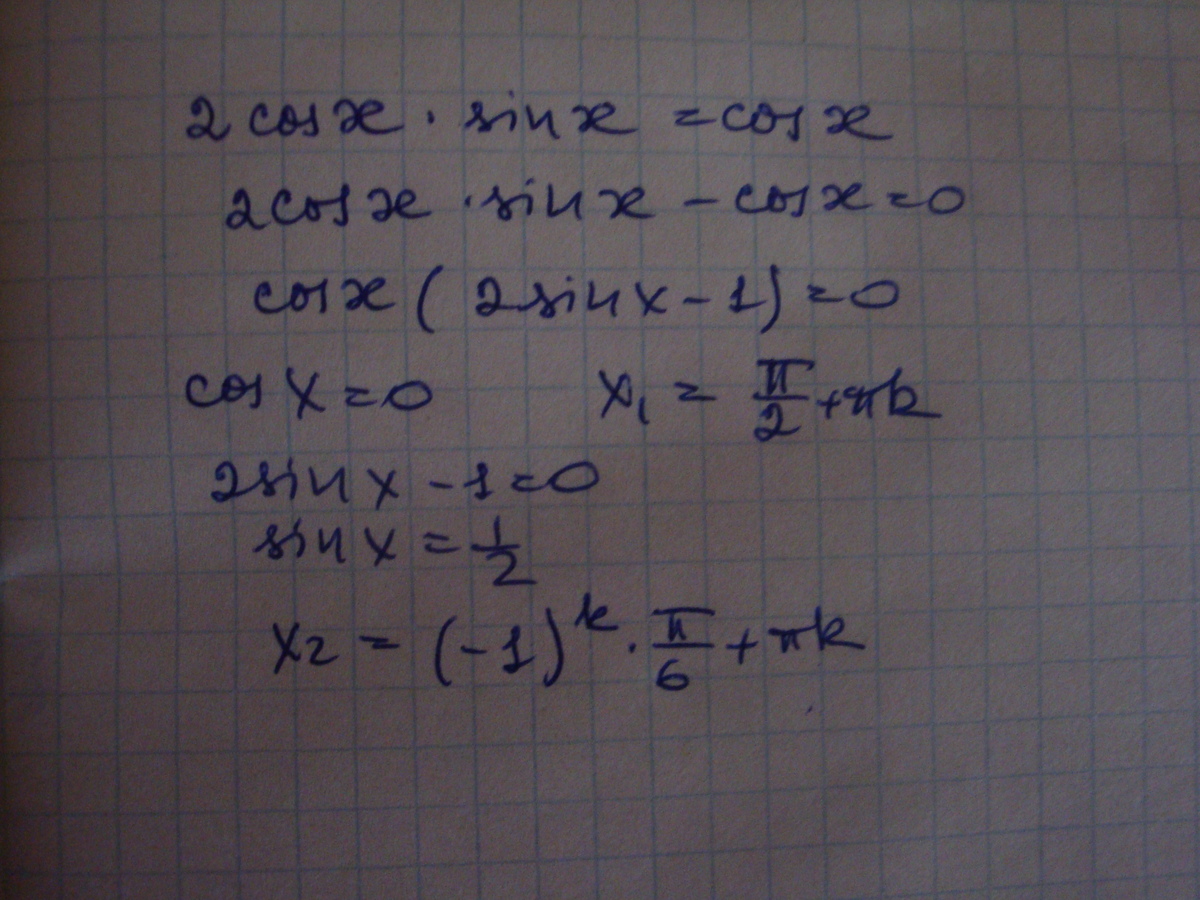 2 cos x · sin x = cos x
2 cos x · sin x - cos x = 0
cos x ( 2 sin x - 1) = 0
cos x = 0 x₁ = π/2 + πk
2 sin x - 1 = 0
sin x = 1/2
x₂ = (-1)ᵏ · π/6 + πk